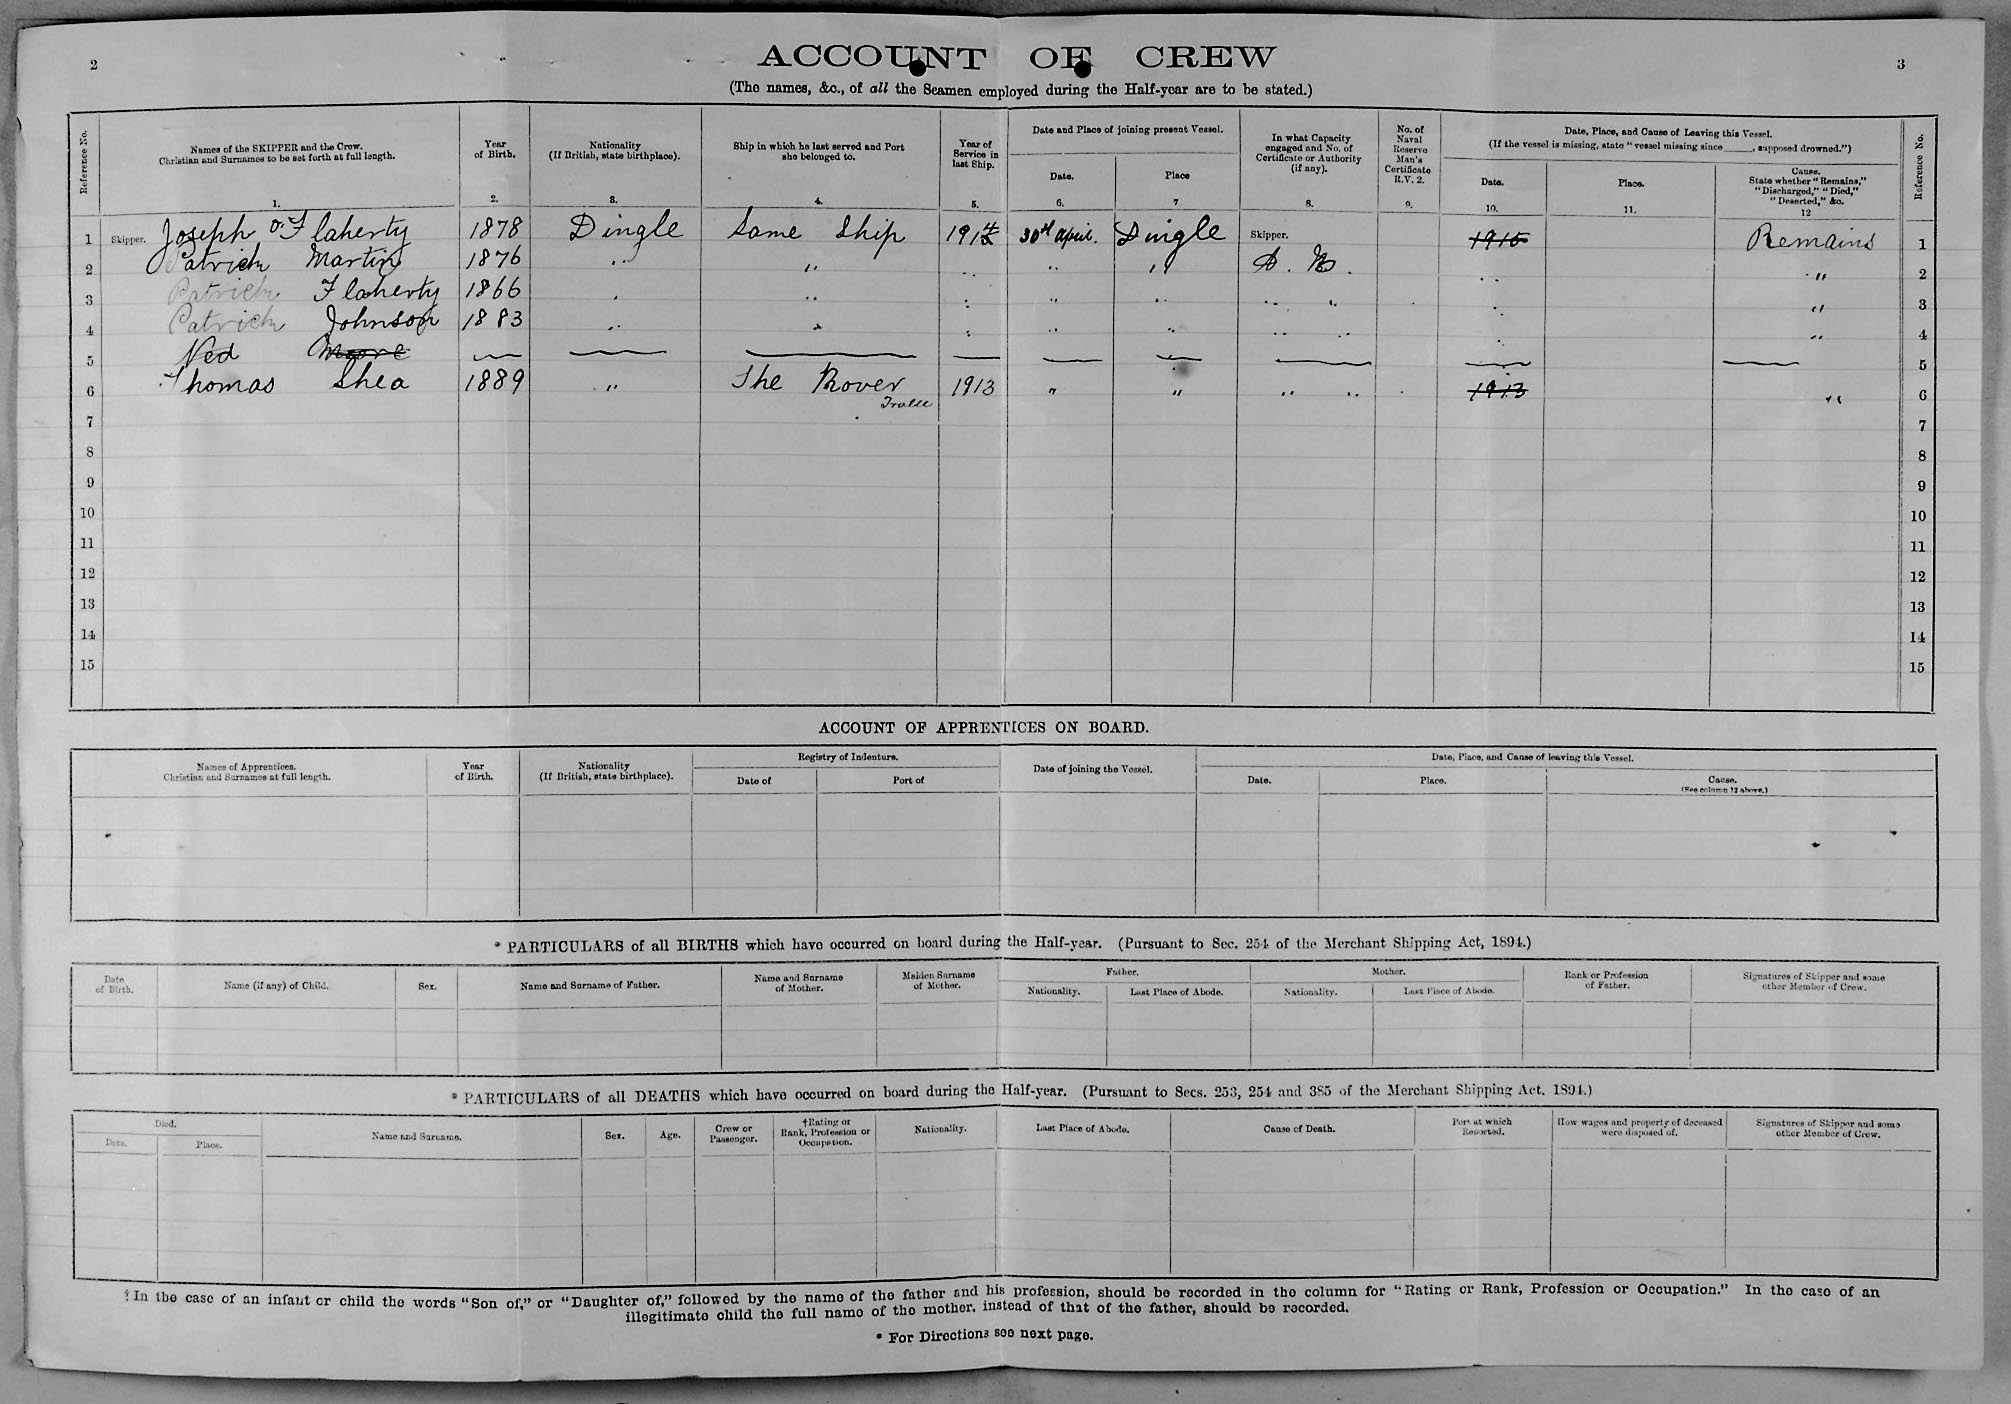 2
ACCOUNT OF CREW
3
(The names, &c., of all the Seamen employed during the Half-year are to be stated.)
Reference No.
Names of the SKIPPER and the Crew.
Christian and Surnames to be set forth at full length.
1.
Year
of Birth.
2.
Nationality
(If British, state birthplace).
3.
Ship in which he last served and Port
she belonged to.
4.
Year of
Service in
last Ship.
5.
Date and Place of joining present Vessel.
Date.
6.
Place
7
In what Capacity
engaged and No. of
Certificate or Authority
(if any).
8.
No. of
Naval
Reserve
Man's
Certificate
R.V. 2.
9.
Date, Place, and Cause of Leaving this Vessel.
(If the vessel is missing, state "vessel missing since ____, supposed drowned.")
Date.
10.
Place.
11.
Cause.
State whether "Remains,"
"Discharged," "Died,"
"Deserted," &c.
12
Reference No.
1 Skipper. Joseph O'Flaherty 1878 Dingle Same Ship 1914 30th April. Dingle Skipper. 1915 Remains 1
2 Patrick Martin 1876 " " " " " " 2
3 Patrick Flaherty 1866 " " " " " " " " 3
4 Patrick Johnson 1883 " " " " " " " " 4
5 Ned Moore — — — — — — — — — 5
6 Thomas Shea 1889 " The Rover Tralee 1913 " " " " 1913 " 6
7 7
8 8
9 9
10 10
11 11
12 12
13 13
14 14
15 15
ACCOUNT OF APPRENTICES ON BOARD.
Names of Apprentices.
Christian and Surnames at full length.
Year
of Birth.
Nationality
(If British, state birthplace).
Registry of Indenture.
Date of
Port of
Date of joining the Vessel.
Date, Place, and Cause of leaving this Vessel.
Date.
Place.
Cause.
(See column 12 above.)
* PARTICULARS of all BIRTHS which have occurred on board during the Half-year. (Pursuant to Sec. 254 of the Merchant Shipping Act, 1894.)
Date
of Birth.
Name (if any) of Child.
Sex.
Name and Surname of Father.
Name and Surname
of Mother.
Maiden Surname
of Mother.
Father.
Nationality.
Last Place of Abode.
Mother.
Nationality.
Last Place of Abode.
Rank or Profession
of Father.
Signatures of Skipper and some
other Member of Crew.
* PARTICULARS of all DEATHS which have occurred on board during the Half-year. (Pursuant to Secs. 253, 254 and 385 of the Merchant Shipping Act. 1894.)
Died.
Date.
Place.
Name and Surname.
Sex.
Age.
Crew or
Passenger.
†Rating or
Rank, Profession or
Occupation.
Nationality.
Last Place of Abode.
Cause of Death.
Port at which
Reported.
How wages and property of deceased
were disposed of.
Signatures of Skipper and some
other Member of Crew.
†In the case of an infant or child the words "Son of," or "Daughter of," followed by the name of the father and his profession, should be recorded in the column for "Rating or Rank, Profession or Occupation." In the case of an
illegitimate child the full name of the mother, instead of that of the father, should be recorded.
* For Directions see next page.